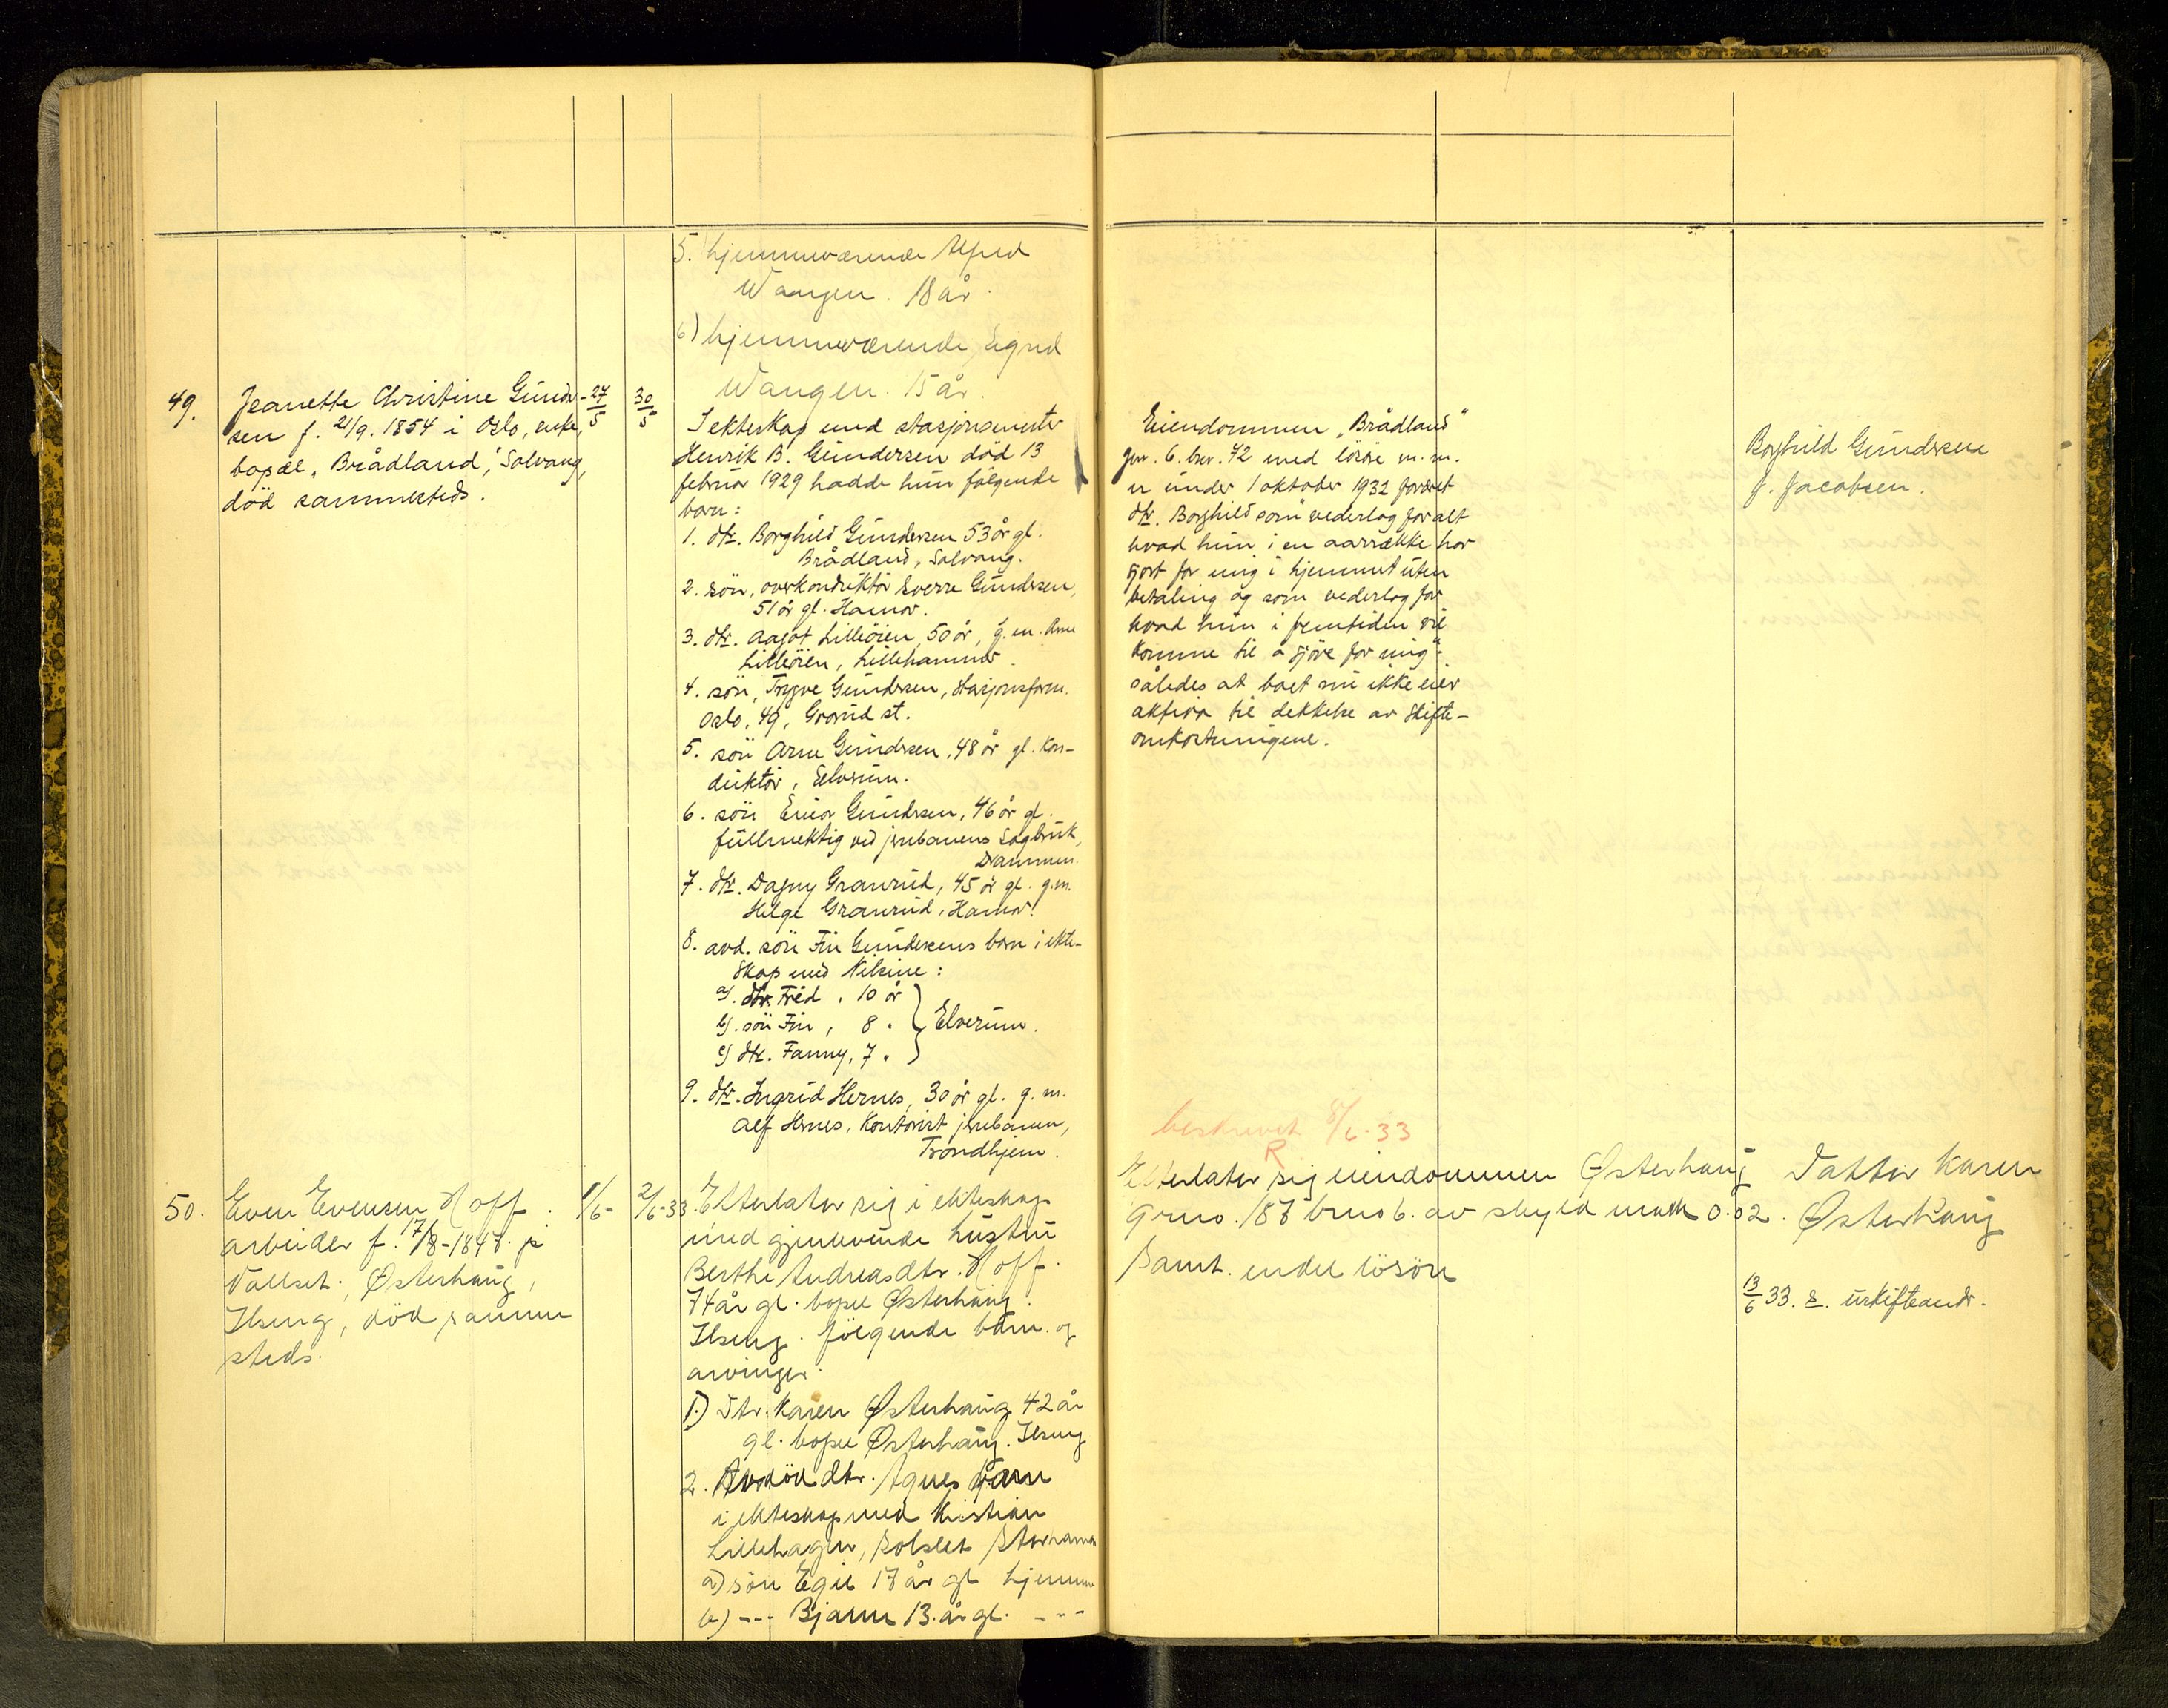 5. hjemmeværende Alfred
Wangen. 18 år.
6) hjemmeværende Sigrid
Wangen. 15 år.
49.
Jeanette Christine Gunder-
sen f. 21/9. 1854 i Oslo, enke,
bopæl „Brådland", Solvang,
död sammesteds.
27/5
30/5
I ekteskap med stasjonsmester
Henrik B. Gundersen död 13
februar 1929 hadde hun fölgende
barn:
1. dtr. Borghild Gundersen 53 år gl.
Brådland, Solvang.
2. sön, overkonduktör Sverre Gundersen,
51 år gl. Hamar.
3. dtr. Aagot Lilleöien, 50 år, g. m. Arne
Lilleöien, Lillehammer.
4. sön, Trygve Gundersen, stasjonsform.
Oslo, 49, Grorud st.
5. sön Arne Gundersen, 48 år gl. Kon-
duktör, Elverum.
6. sön Einar Gundersen, 46 år gl.
fullmektig ved jernbanens Sagbruk,
Drammen.
7. dtr. Dagny Granrud, 45 år gl. g.m.
Helge Granrud, Hamar.
8. avd. sön Fin Gundersens barn i ekte-
skap med Nilsine:
a). dtr. Fred, 10 år
b). sön Fin, 8 "
Elverum.
c) dtr. Fanny, 7 "
9. dtr. Ingrid Hernes, 30 år gl. g. m.
Alf Hernes, Kontorist jernbanen,
Trondhjem.
Eiendommen „Brådland"
gnr. 6. bnr. 42 med lösöre m. m.
er under 1 oktober 1932 foræret
dtr. Borghild som "vederlag for alt
hvad hun i en aarrække har
gjort for mig i hjemmet uten
betaling og som vederlag for
hvad hun i fremtiden vil
komme til å gjöre for mig"
således at boet nu ikke eier
aktiva til dekkelse av skifte-
omkostningene.
Borghild Gundersen
f. Jacobsen.
50.
Even Evensen Hoff.
arbeider f. 17/8-1847. på
Vallset. Østerhaug,
Ilseng, död samme
steds.
1/6-
2/6-33.
Efterlater sig i ekteskap
med gjenlevende hustru
Berthe Andreasdtr. Hoff.
74 år gl. bopel Østerhaug.
Ilseng. fölgende barn og
arvinger.
1.) Dtr. Karen Østerhaug 42 år
gl. bopel Østerhaug. Ilseng
2. Avdöd dtr. Agnes barn
i ekteskap med Kristian
Lillehagen, Storhamar
a) sön Egil 17 år gl hjemme
b) --- Bjarne 13. år gl. ---
beskrevet 8/6-33
R
Efterlater sig eiendommen Østerhaug
grno. 187 brno 6. av skyld mark 0.02.
samt. endel lösöre
Datter Karen
Østerhaug
13/6 33. uskifteandr.